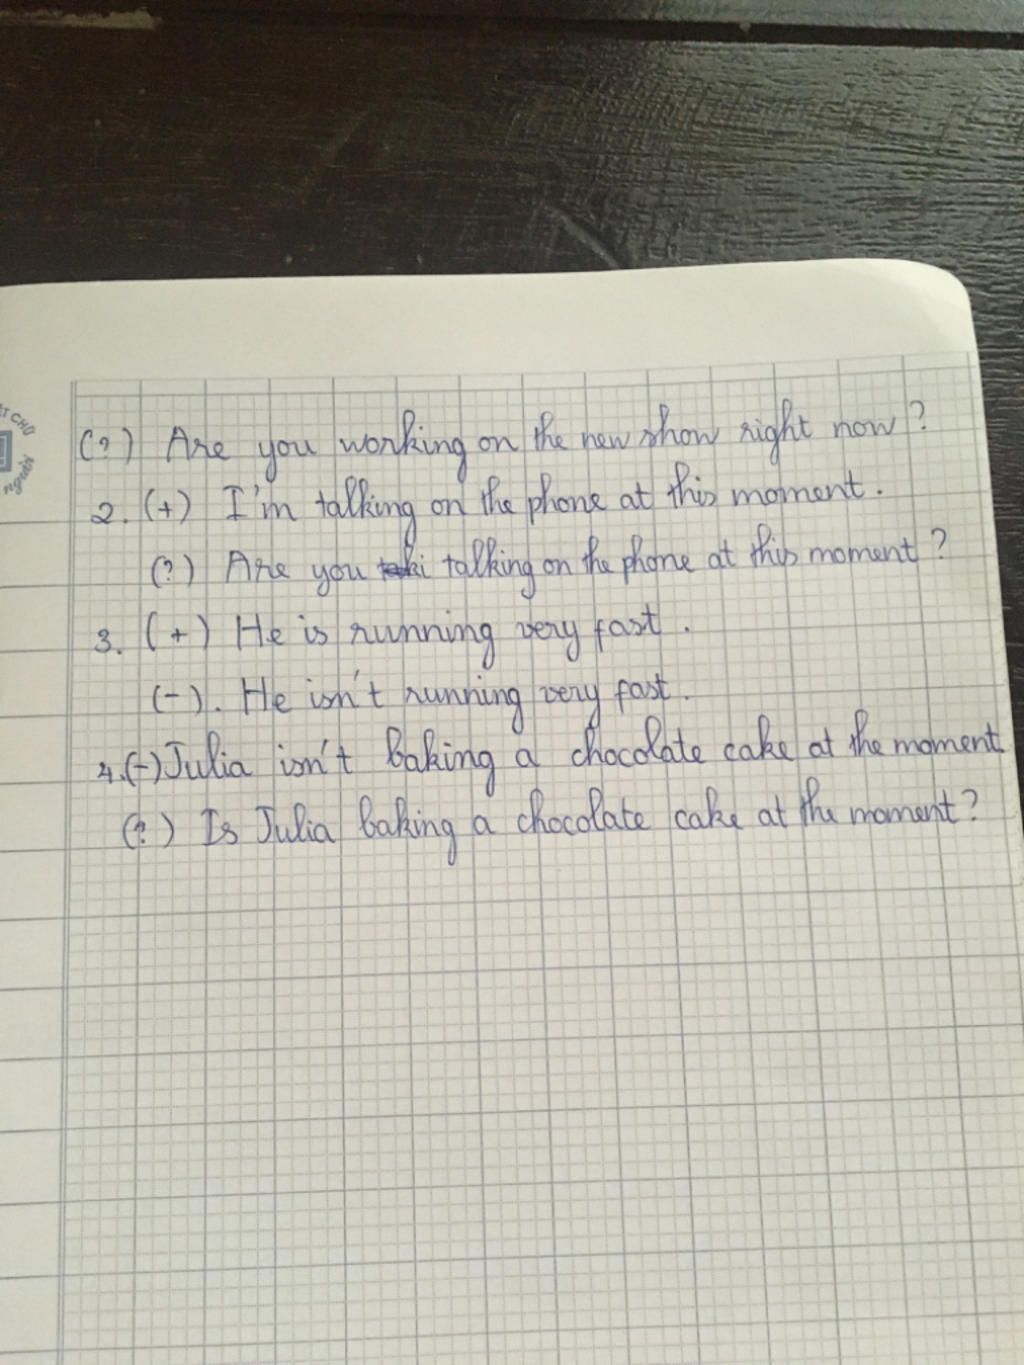 (?) Are you working on the new show right now?
2. (+) I'm talking on the phone at this moment.
(?) Are you talking on the phone at this moment?
3. (+) He is running very fast.
(-). He isn't running very fast.
4. (-) Julia isn't baking a chocolate cake at the moment
(?) Is Julia baking a chocolate cake at the moment?